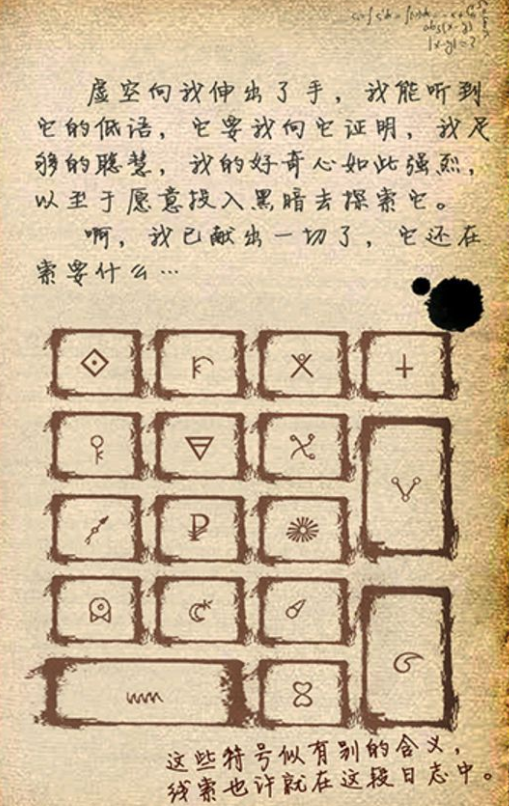 abs(x-y)
|x-y|=?
虚空向我伸出了手，我能听到
它的低语，它要我向它证明，我足
够的聪慧，我的好奇心如此强烈，
以至于愿意投入黑暗去探索它。
啊，我已献出一切了，它还在
索要什么…
这些符号似有别的含义，
线索也许就在这段日志中。